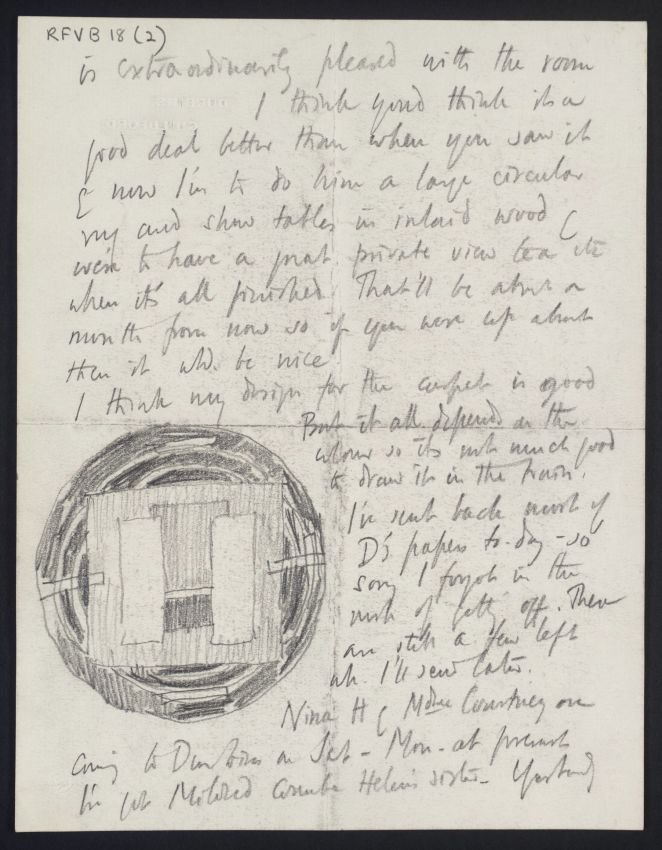 RFVB 18 (2)
is extraordinarily pleased with the room
I think you'd think it a
good deal better than when you saw it
& now I'm to do him a large circular
rug and show tables in inlaid wood &
we're to have a great private view tea etc
when it's all finished. That'll be about a
month from now so if you were up about
then it wld. be nice
I think my design for the carpet is good
But it all depends on the
colour so its not much good
to draw it in the train.
I've sent back most of
D's papers to-day - so
sorry I forgot in the
rush of getting off. There
are still a few left
wh. I'll send later.
Nina H & Mdme Courtney are
coming to Durbins on Sat - Mon - at present
I've got Mildred Coombe Helen's sister - Yesterday